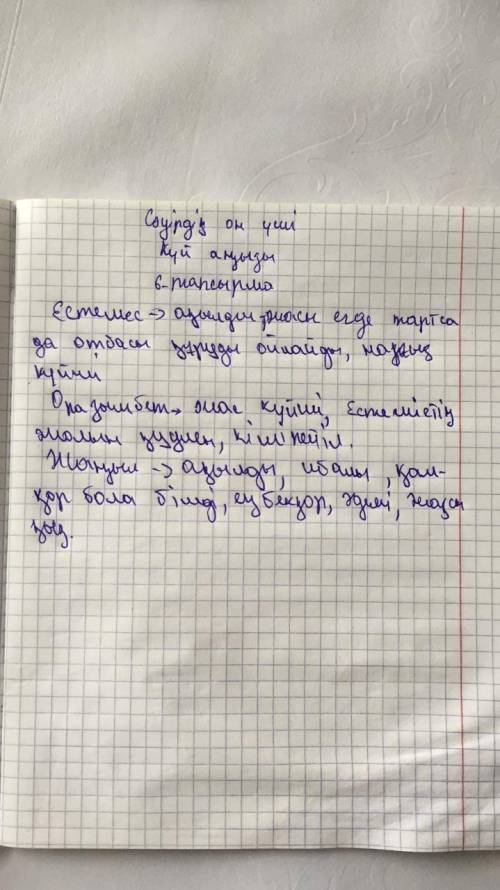 Сәуірдің он үші
Күй аңызы
6-тапсырма
Естемес → ақылды, жасы егде тартса
да отбасы құруды ойлайды, нағыз
күйші
Оразымбет → жас күйші, Естемістің
жолын қуушы, кішіпейіл.
Жаңыл → ақылды, ибалы, қам-
қор бола білді, еңбекқор, әдемі, жақсы
қыз.